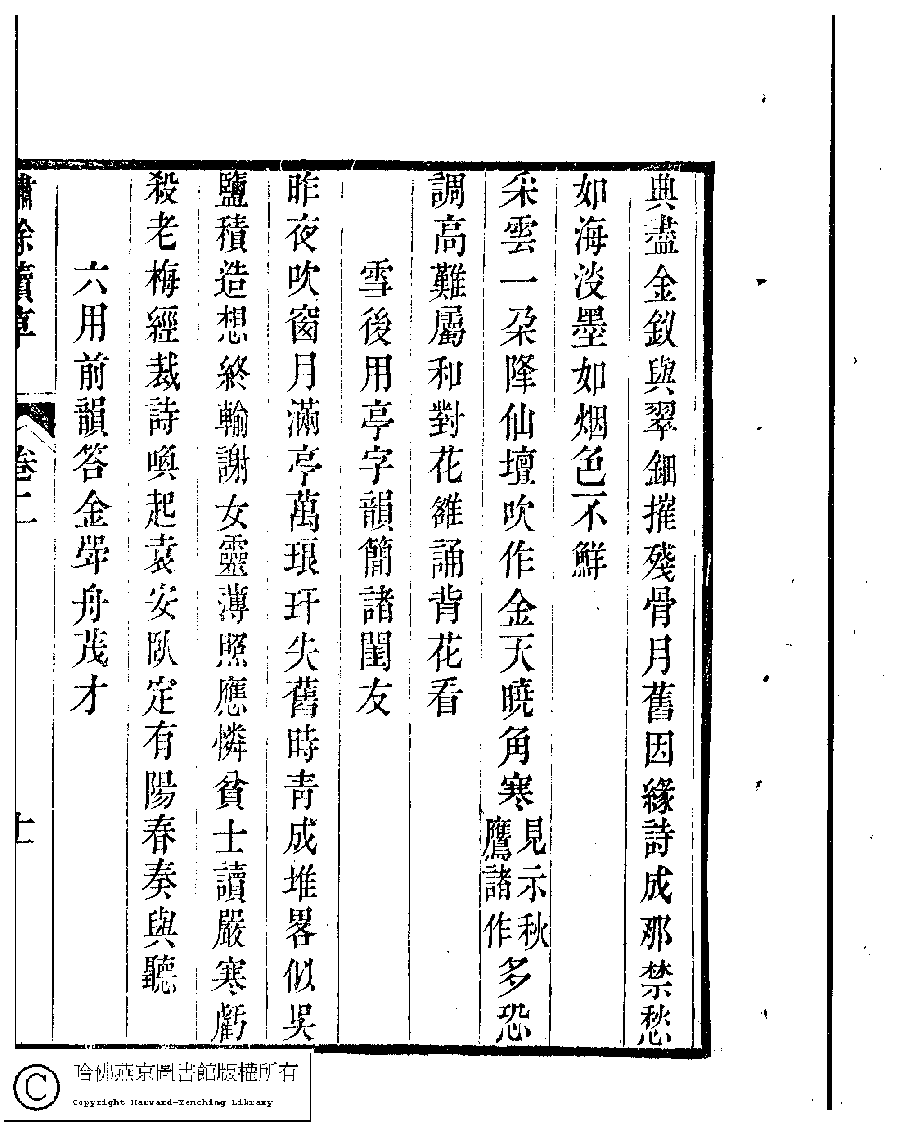 典盡金釵與翠鈿摧殘骨月舊因緣詩成那禁愁
如海淡墨如烟色不鮮
采雲一朶降仙壇吹作金天曉角寒見示秋鷹諸作多恐
調高難屬和對花雒誦背花看
雪後用亭字韻簡諸閨友
昨夜吹窗月滿亭萬琅玕失舊時青成堆畧似吳
鹽積造想終輸謝女靈薄照應憐貧士讀嚴寒虧
殺老梅經裁詩喚起袁安臥定有陽春奏與聽
六用前韻答金犖舟茂才
繡餘續草
卷二
十
哈佛燕京圖書館版權所有
Copyright Harvard-Yenching Library